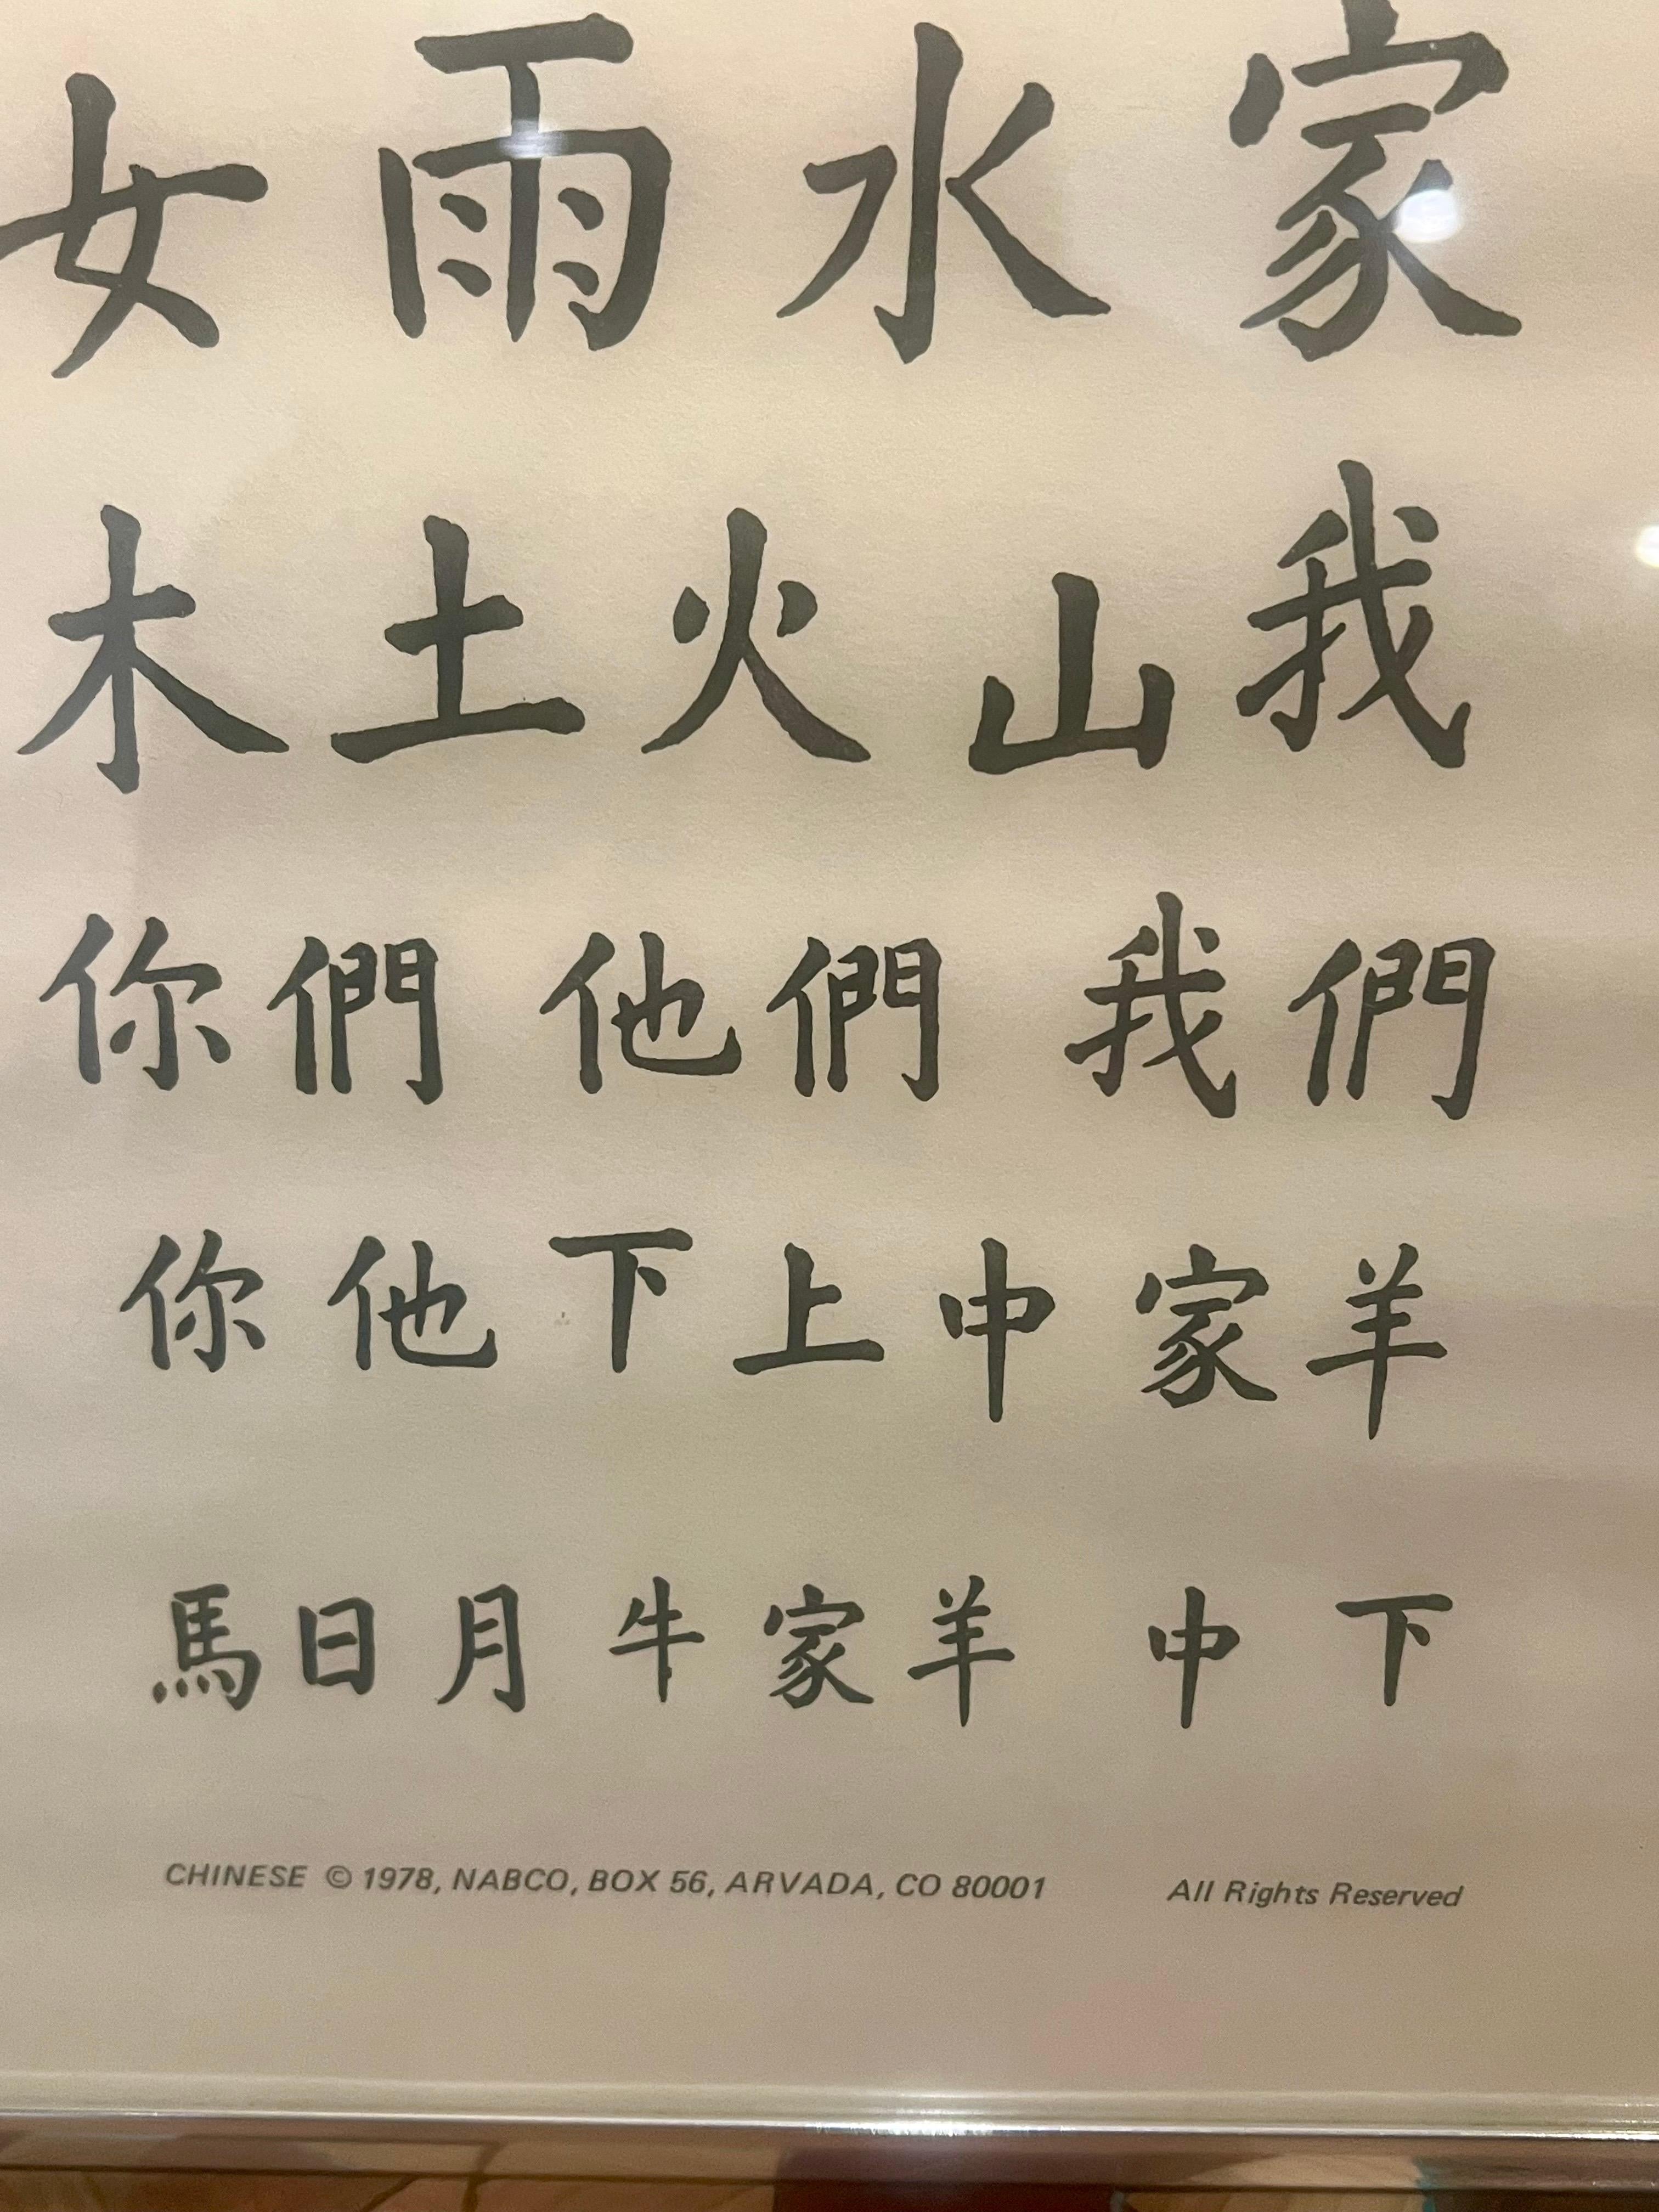 女 雨 水 家
木 土 火 山 我
你們 他們 我們
你 他 下 上 中 家 羊
馬 日 月 牛 家 羊 中 下
CHINESE © 1978, NABCO, BOX 56, ARVADA, CO 80001 All Rights Reserved